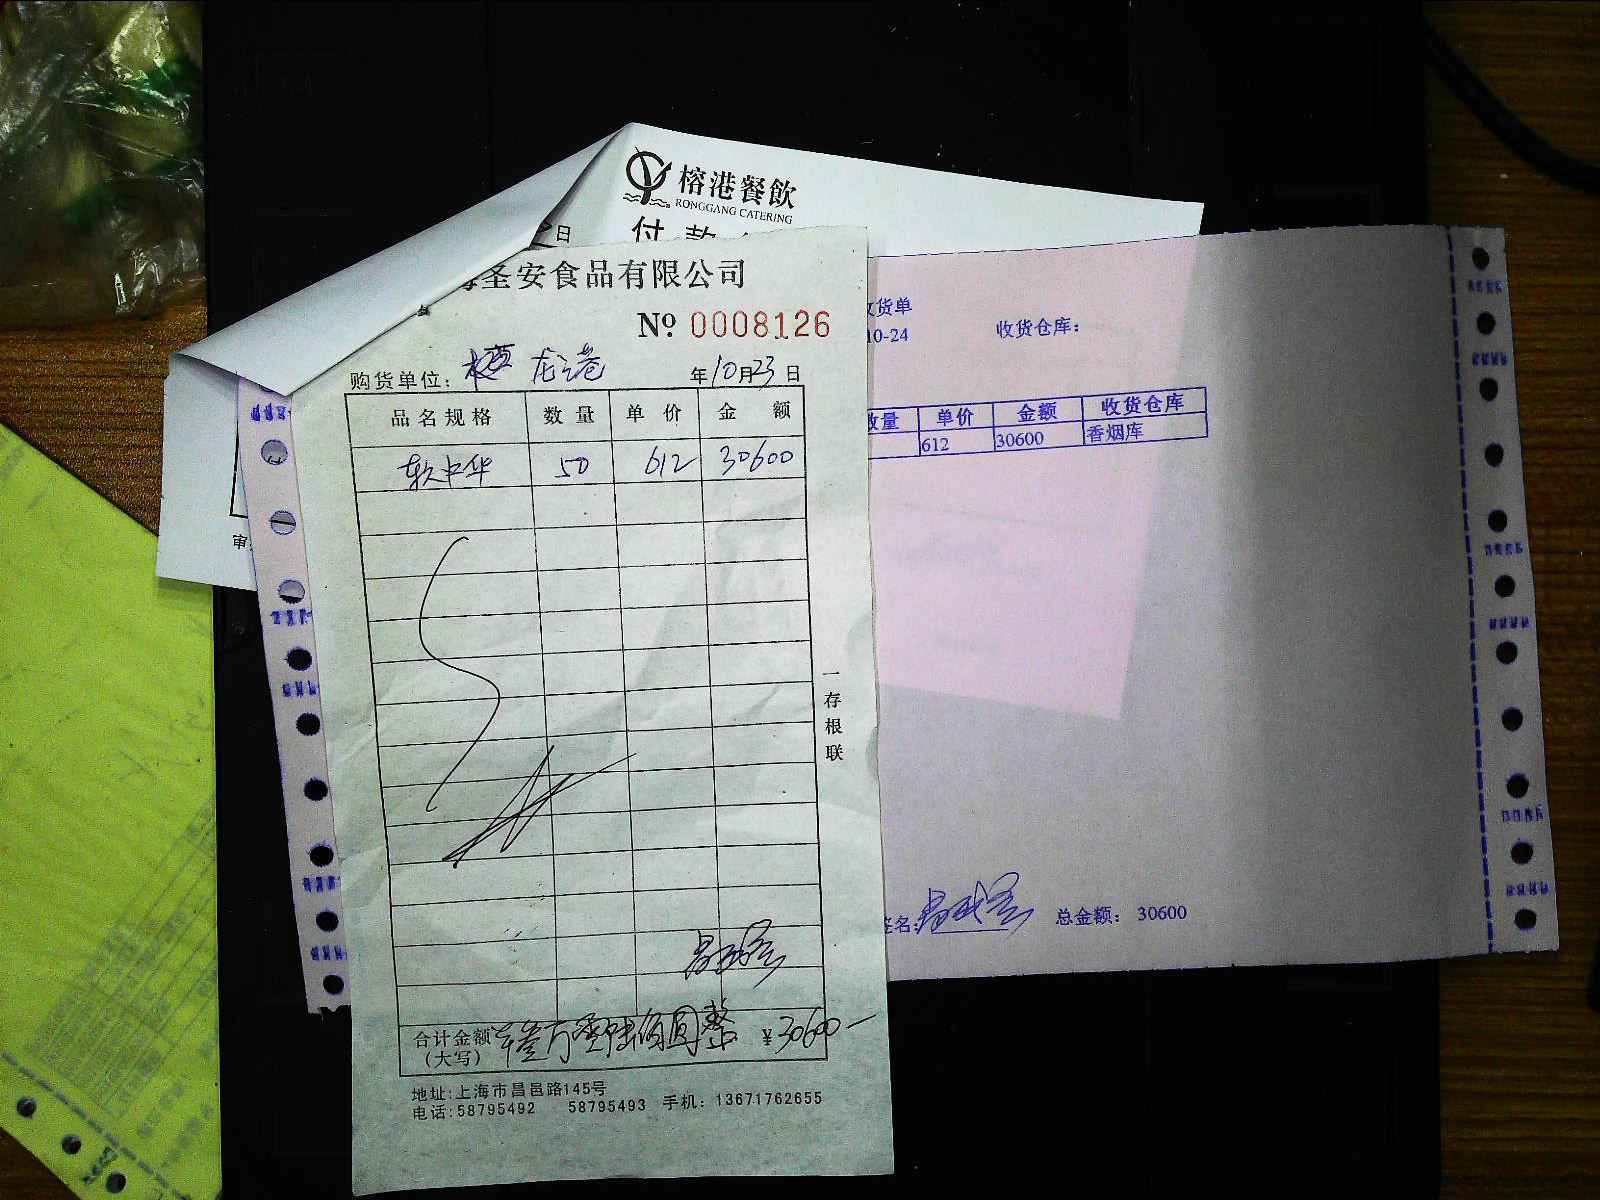 榕港餐飲
RONGGANG CATERING
日
付款
圣安食品有限公司
№ 0008126
购货单位: 龙港 年10月23日
品名规格 数量 单价 金额
软中华 50 612 30600
一存根联
合计金额
(大写) 叁万零陆佰圆整 ¥30600—
地址:上海市昌邑路145号
电话:58795492 58795493 手机: 13671762655
收货单
10-24 收货仓库:
数量 单价 金额 收货仓库
612 30600 香烟库
签名: 总金额: 30600
审